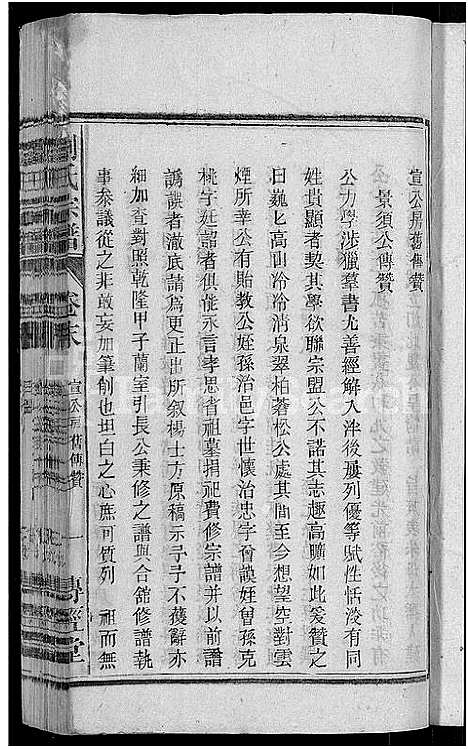 宣公房舊傳贊
景須公傳贊
公力學涉獵羣書尤善經解入泮後屢列優等賦性恬淡有同
姓貴顯者契其學欲聯宗盟公不諾其志趣高曠如此爰贊之
曰巍巍高山泠泠清泉翠柏蒼松公處其間至今想望空對雲
煙所幸公有貽教公姪孫治邑字世懷治忠字會謨姪曾孫克
桃字廷謌者俱能永言孝思者祖墓捐祀費修宗譜并以前譜
譌誤者澈底請為更正出所叙楊士方原稿示予予不獲辭亦
細加查對照乾隆甲子蘭室引長公秉修之譜與合舘修譜執
事叅議從之非敢妄加筆削也坦白之心庶可質列 祖而無
劉氏宗譜 卷末 宣公房舊傳贊 一 傳經堂